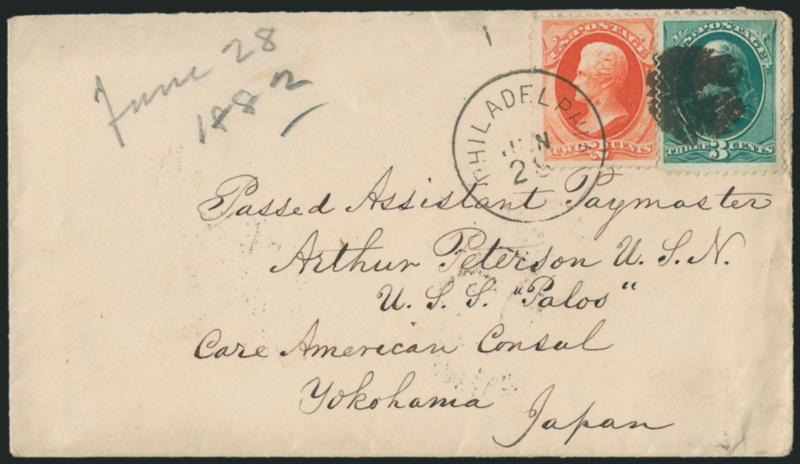 June 28
1882
U.S. POSTAGE
TWO 2 CENTS
U.S. POSTAGE
THREE 3 CENTS
PHILADELPHIA
JUN
28
Passed Assistant Paymaster
Arthur Peterson U.S.N.
U.S.S. "Palos"
Care American Consul
Yokohama
Japan